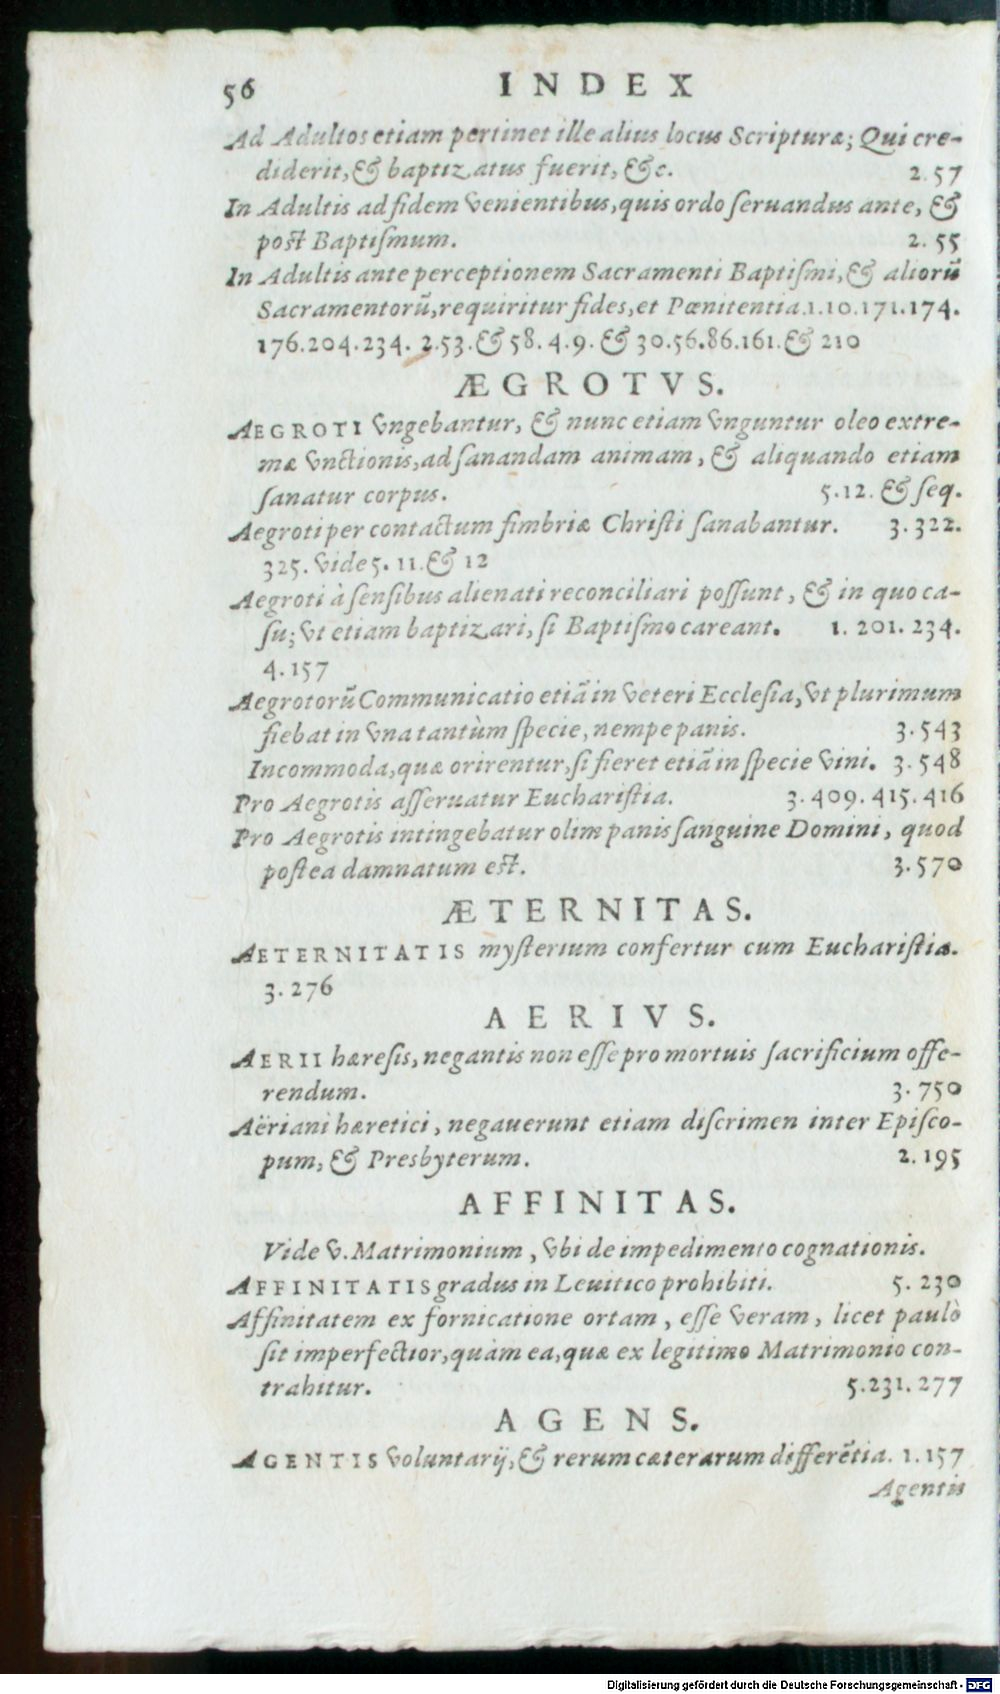 56 INDEX
Ad Adultos etiam pertinet ille alius locus Scripturæ; Qui cre-
diderit, & baptizatus fuerit, &c. 2.57
In Adultis ad fidem venientibus, quis ordo ſeruandus ante, &
poſt Baptiſmum. 2.55
In Adultis ante perceptionem Sacramenti Baptiſmi, & aliorũ
Sacramentorũ, requiritur fides, et Pœnitentia. 1.10.171.174.
176.204.234. 2.53. & 58. 4.9. & 30.56.86.161. & 210
ÆGROTVS.
AEGROTI vngebantur, & nunc etiam vnguntur oleo extre-
mæ vnctionis, ad ſanandam animam, & aliquando etiam
ſanatur corpus. 5.12. & ſeq.
Aegroti per contactum fimbriæ Chriſti ſanabantur. 3.322.
325. vide 5. 11. & 12
Aegroti à ſenſibus alienati reconciliari poſſunt, & in quo ca-
ſu; vt etiam baptizari, ſi Baptiſmo careant. 1. 201. 234.
4.157
Aegrotorũ Communicatio etiã in veteri Eccleſia, vt plurimum
fiebat in vna tantùm ſpecie, nempe panis. 3.543
Incommoda, quæ orirentur, ſi fieret etiã in ſpecie vini. 3.548
Pro Aegrotis aſſeruatur Euchariſtia. 3.409.415.416
Pro Aegrotis intingebatur olim panis ſanguine Domini, quod
poſtea damnatum eſt. 3.570
ÆTERNITAS.
AETERNITATIS myſterium confertur cum Euchariſtia.
3.276
AERIVS.
AERII hæreſis, negantis non eſſe pro mortuis ſacrificium offe-
rendum. 3.750
Aëriani hæretici, negauerunt etiam diſcrimen inter Epiſco-
pum, & Presbyterum. 2.195
AFFINITAS.
Vide v. Matrimonium, vbi de impedimento cognationis.
AFFINITATIS gradus in Leuitico prohibiti. 5.230
Affinitatem ex fornicatione ortam, eſſe veram, licet paulò
ſit imperfectior, quàm ea, quæ ex legitimo Matrimonio con-
trahitur. 5.231.277
AGENS.
AGENTIS voluntarij, & rerum cæterarum differẽtia. 1.157
Agentis
Digitalisierung gefördert durch die Deutsche Forschungsgemeinschaft - DFG